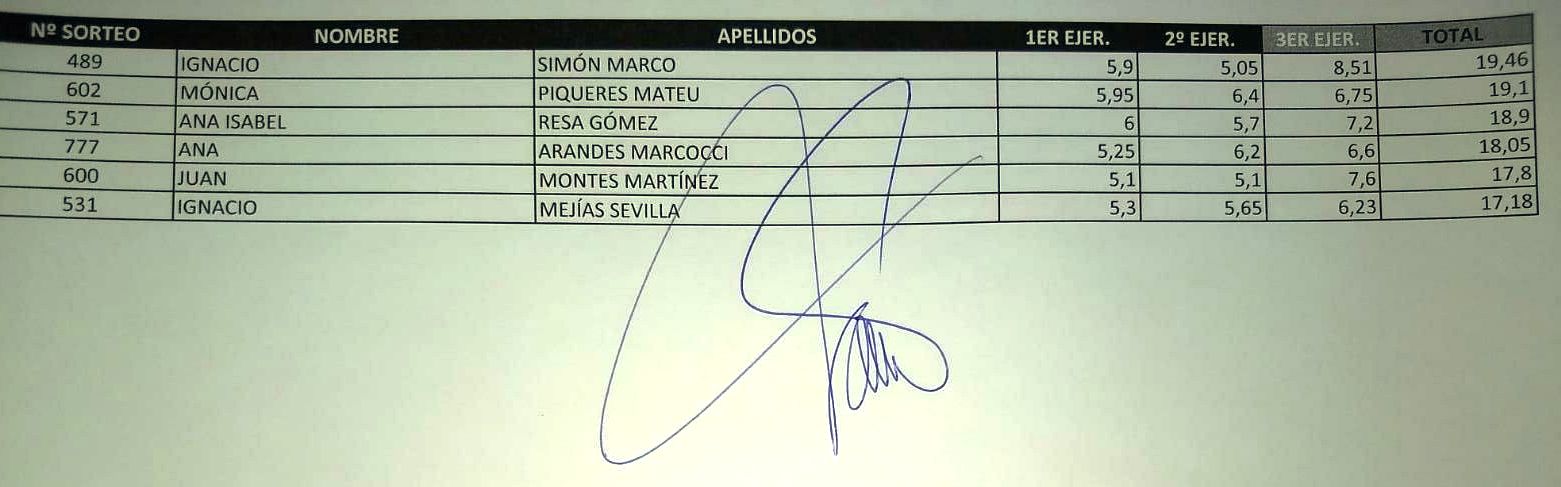 Nº SORTEO NOMBRE APELLIDOS 1ER EJER. 2º EJER. 3ER EJER. TOTAL
489 IGNACIO SIMÓN MARCO 5,9 5,05 8,51 19,46
602 MÓNICA PIQUERES MATEU 5,95 6,4 6,75 19,1
571 ANA ISABEL RESA GÓMEZ 6 5,7 7,2 18,9
777 ANA ARANDES MARCOCCI 5,25 6,2 6,6 18,05
600 JUAN MONTES MARTÍNEZ 5,1 5,1 7,6 17,8
531 IGNACIO MEJÍAS SEVILLA 5,3 5,65 6,23 17,18